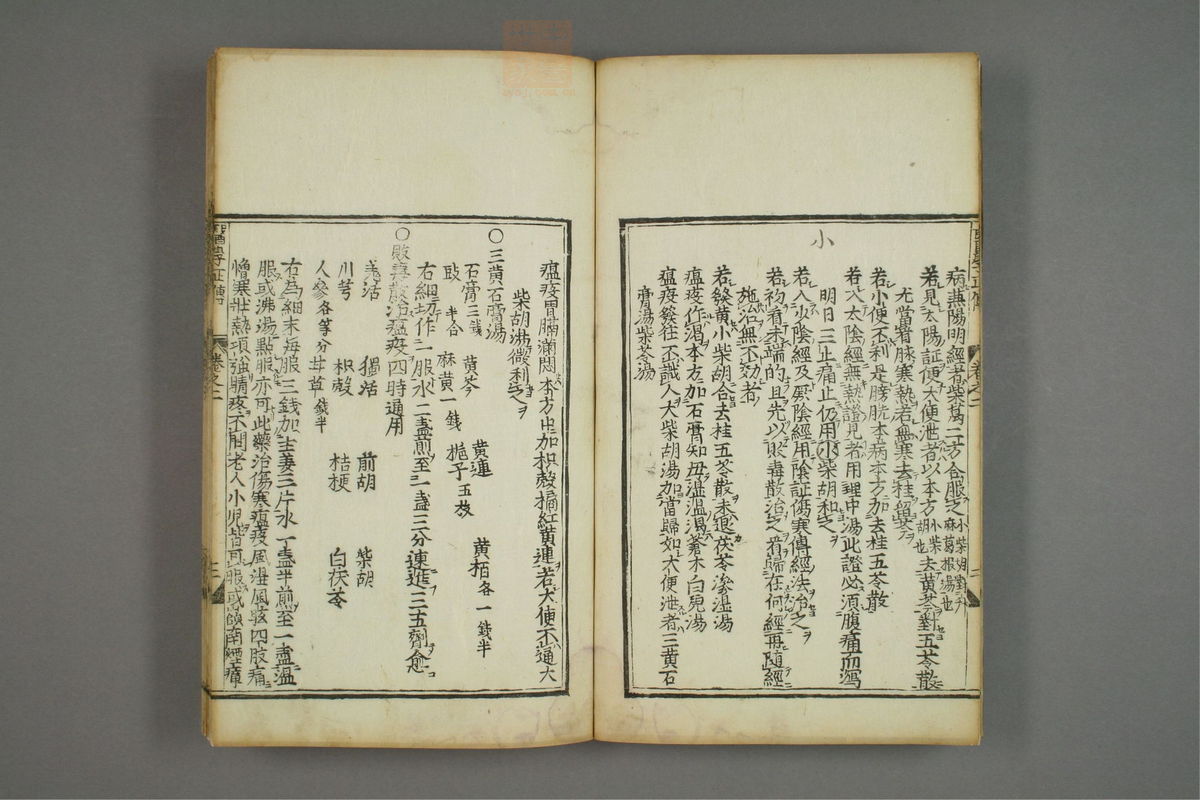 病兼陽明經者柴葛二方合服之小柴胡對升麻葛根湯也
若見太陽証便大便泄者以本方小柴胡也去黄芩對五苓散
尤當看脉寒熱若無寒去桂留
若小便不利是膀胱本病本方加去桂五苓散
若入太陰經無熱證見者用理中湯此證必須腹痛而瀉
明日三止痛止仍用小柴胡和之
若入少陰經及厥陰經用陰証傷寒傳經法治之
若初看未端的且先以敗毒散治之看歸在何經再隨經
施治無不効者
若發黄小柴胡合去桂五苓散未退茯苓滲湿湯
瘟疫作渴本方加石膏知母湿温渴蒼术白虎湯
瘟疫發狂不識人大柴胡湯加當歸如大便泄者三黄石
膏湯柴苓湯
小
瘟疫胃膈滿悶本方中加枳殻橘紅黄連若大便不通大
柴胡湯微利之
〇三黄石膏湯
石膏三錢 黄芩 黄連 黄栢各一錢半
豉半合 麻黄一錢 梔子五枚
右細切作一服水二盞煎至一盞三分連進三五劑愈
〇敗毒散治瘟疫四時通用
羗活 獨活 前胡 柴胡
川芎 枳殻 桔梗 白茯苓
人參各等分 甘草錢半
右為細末每服三錢加生姜三片水一盞半煎至一盞温
服或沸湯點服亦可此藥治傷寒瘟疫風湿風眩四肢痛
憎寒壯熱項強睛疼不問老人小兒皆可服或嶺南煙瘴
醫學正傳
卷之二